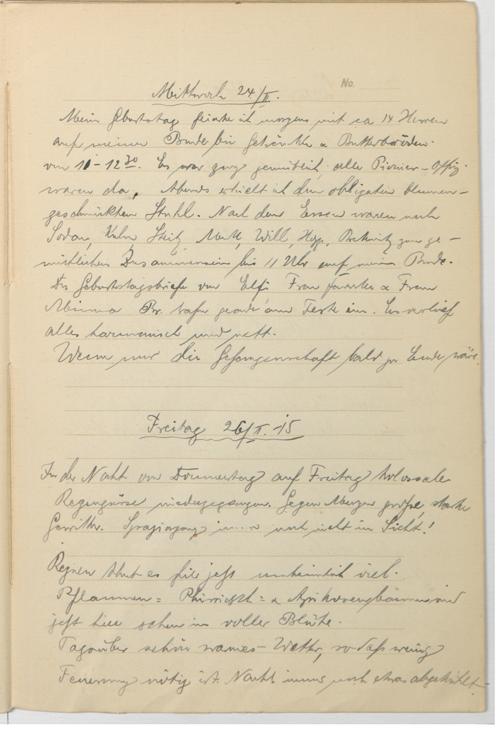 No.
Mittwoch 24/II.
Mein Geburtstag feierte ich morgens mit ca 14 Herren
auf meiner Bude bei Getränken u Butterbröden
von 11 - 12 30. Es war ganz gemütlich, alle Pionier-Offiz.
waren da, Abends erhielt ich den obligaten blumen-
geschmückten Stuhl. Nach dem Essen waren noch
Sodan, Kuhn, Steitz, Will, zum ge-
mütlichen Zusammensein bis 11 Uhr auf meiner Bude.
Die Geburtstagsbriefe von Frau u Frau
trafen gerade am Feste ein. Es verlief
alles harmonisch und nett.
Wenn nur die Gefangenschaft bald zu Ende wäre.
Freitag 26/II. 15
In der Nacht von Donnerstag auf Freitag kolossale
Regengüsse niedergegangen. Gegen Morgen große, starke
Gewitter. Spaziergang immer noch nicht in Sicht!
Regnen thut es hier jetzt unheimlich viel.
Pflaumen= Pfirsich= u Aprikosenbäume sind
jetzt hier schon in voller Blüte.
Tagsüber schön warmes Wetter, so daß wenig
Feuerung nötig ist. Nachts immer noch etwas abgekühlt.